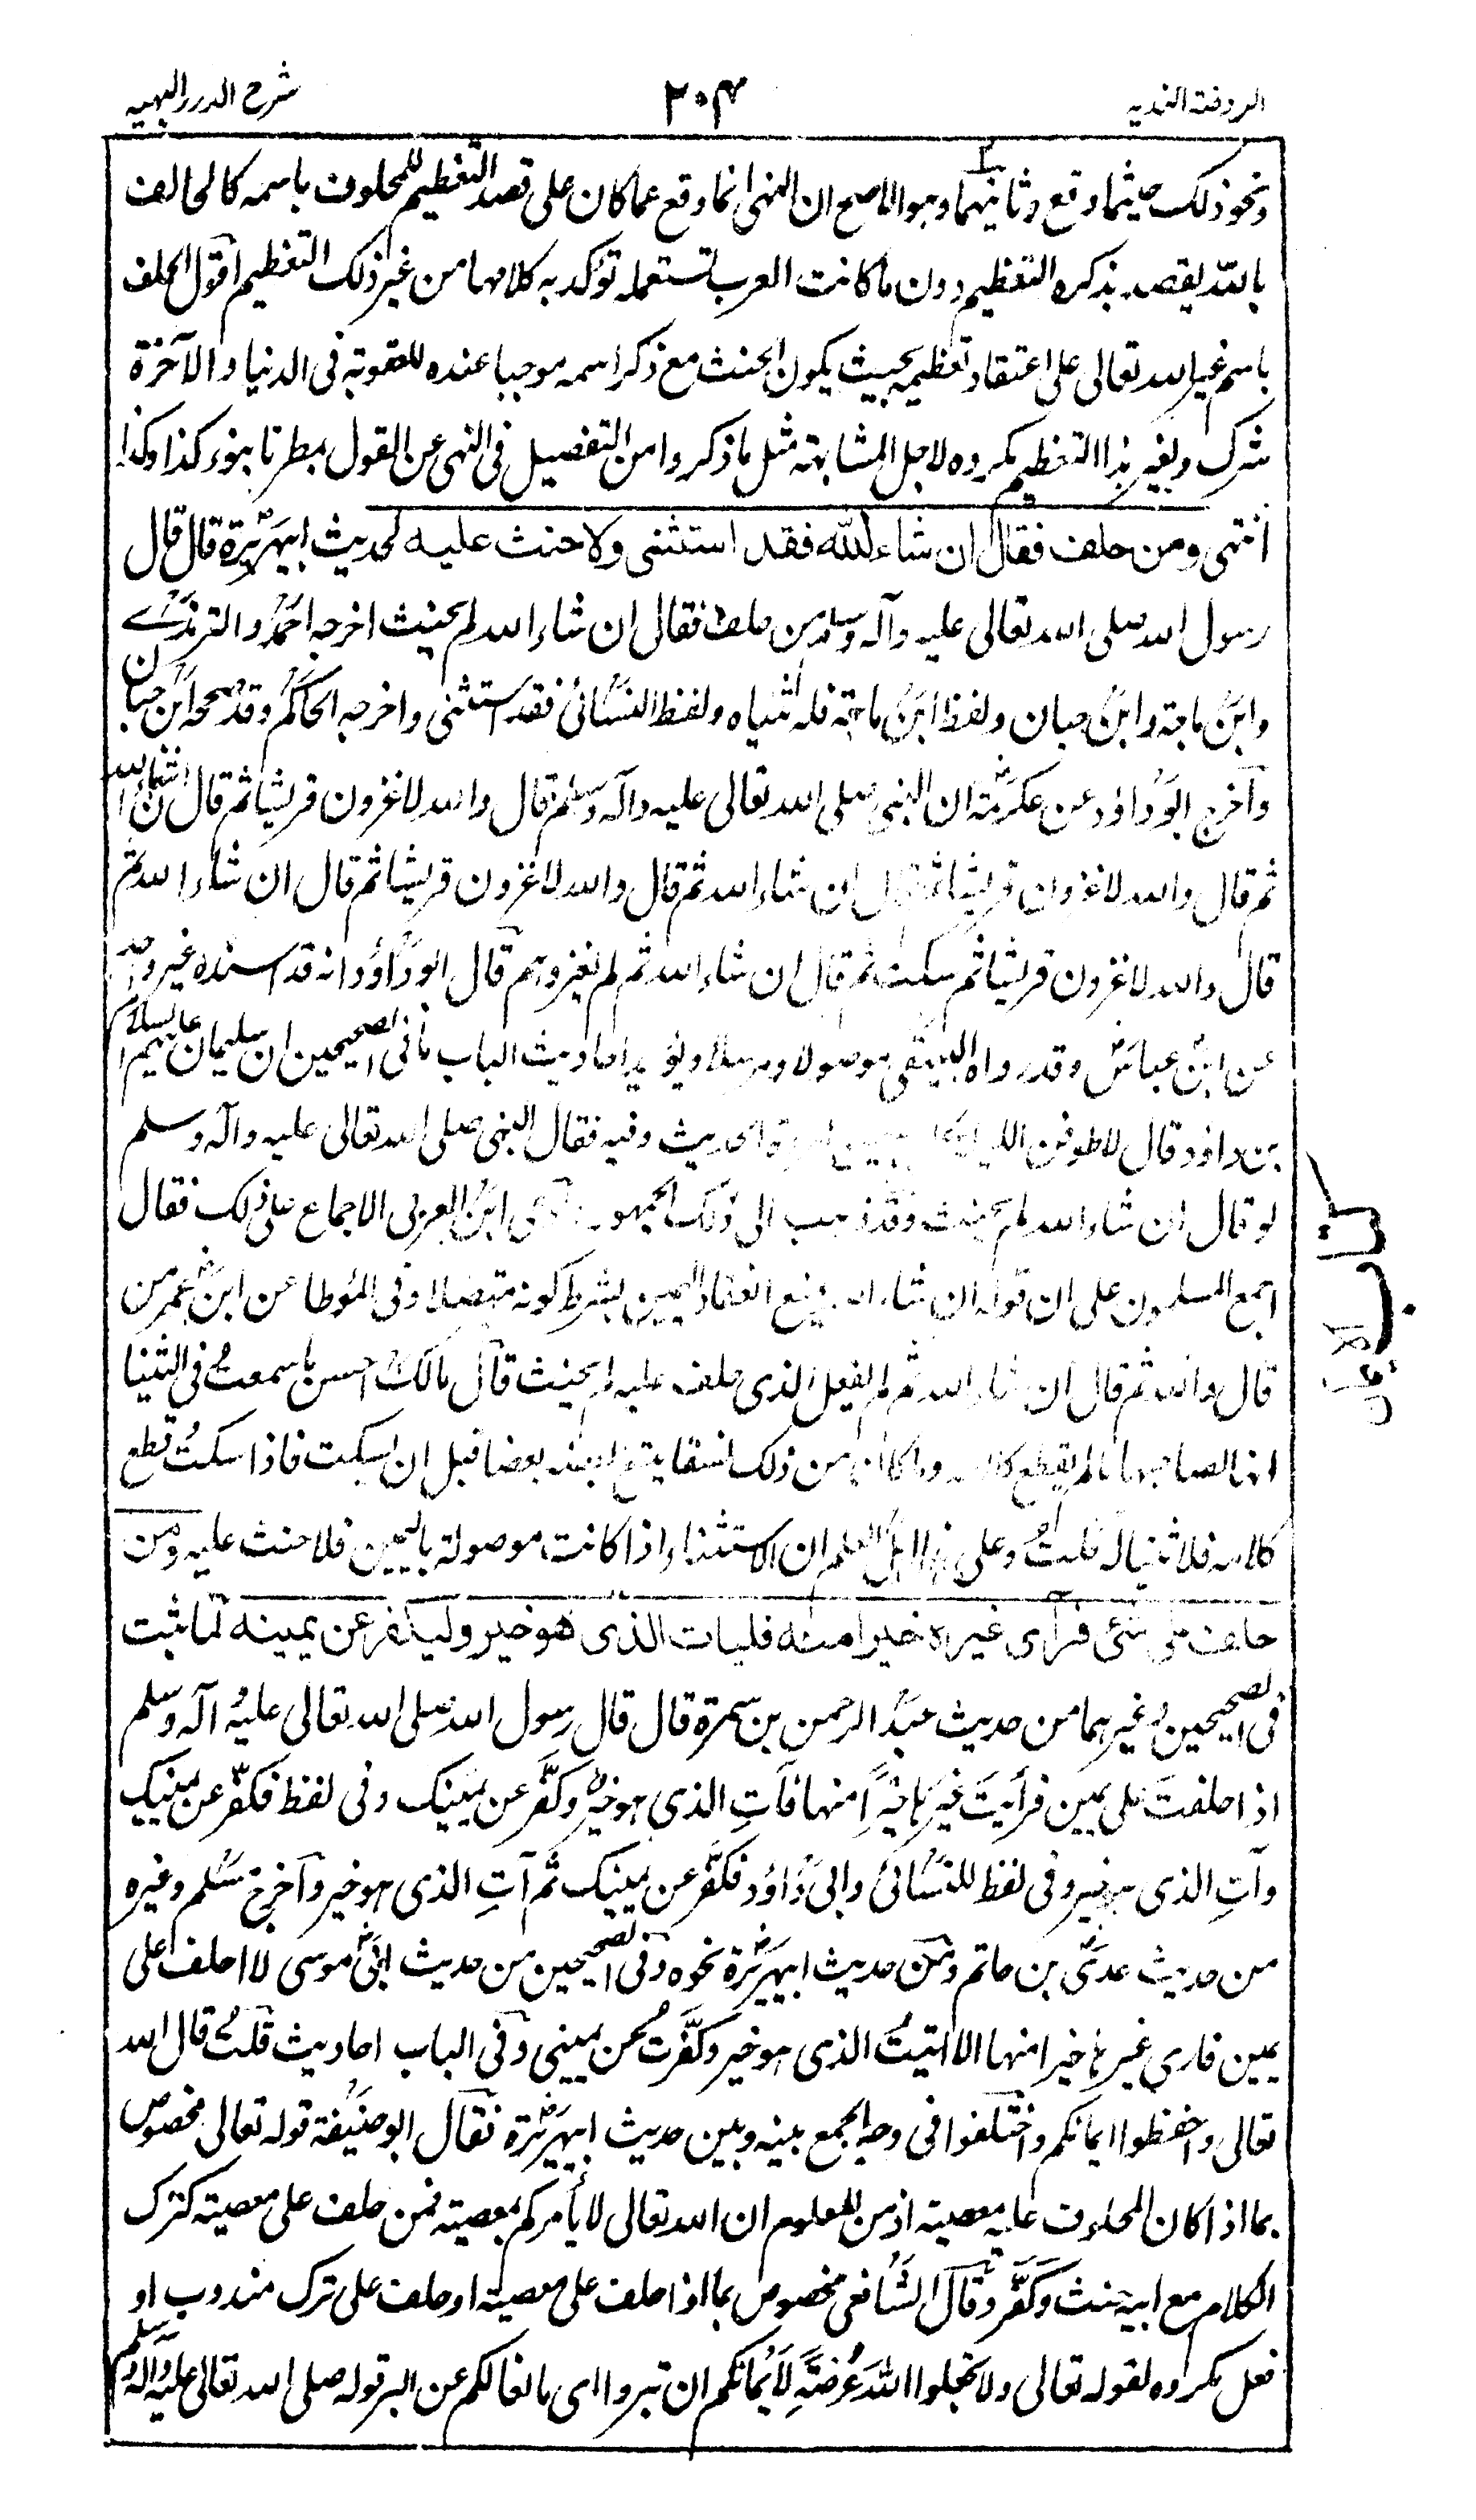 الروضة الندیه
٢٠۴
شرح الدرر البهیه
ونحو ذلك حیثما وقع وثانیهما وهو الاصح ان النهی انما وقع عما كان على قصد التعظیم للمحلوف باسمه كالحالف
بالله یقصد بذكره التعظیم دون ما كانت العرب تستعمله تؤكد به كلامها من غیر ذلك التعظیم اقول الحلف
باسم غیر الله تعالى على اعتقاد تعظیمه بحیث یكون الحنث مع ذكر اسمه موجبا عنده للعقوبة فی الدنیا والآخرة
شرك ولغیر هذا التعظیم مكروه لاجل المشابهة مثل ما ذكروا من التفصیل فی النهی عن القول مطرنا بنوء كذا وكذا
انتهى ومن حلف فقال ان شاء الله فقد استثنى ولا حنث علیه لحدیث ابیهریرة قال قال
رسول الله صلى الله تعالى علیه وآله وسلم من حلف فقال ان شاء الله لم یحنث اخرجه احمد والترمذی
وابن ماجة وابن حبان ولفظ ابن ماجة فله ثنیاه ولفظ النسائی فقد استثنى واخرجه الحاكم وقد صححه ابن حبان
وآخرج ابو داؤد عن عكرمة ان النبی صلى الله تعالى علیه وآله وسلم قال والله لاغزون قریشا ثم قال ان شاء الله
ثم قال والله لاغزون قریشا ثم قال ان شاء الله ثم قال والله لاغزون قریشا ثم قال ان شاء الله ثم
قال والله لاغزون قریشا ثم سكت ثم قال ان شاء الله ثم لم یغزوهم قال ابو داؤد انه قد اسنده غیر واحد
عن ابن عباس وقد رواه البیهقی موصولا ومرسلا ویؤید احادیث الباب ما فی الصحیحین ان سلیمان علیهم السلام
بن داؤد قال لاطوفن اللیلة الحدیث وفیه فقال النبی صلى الله تعالى علیه وآله وسلم
لو قال ان شاء الله لم یحنث وقد ذهب الى ذلك الجمهور ابن العربی الاجماع على ذلك فقال
اجمع المسلمون على ان قوله ان شاء الله یمنع انعقاد الیمین بشرط كونه متصلا وفی المؤطا عن ابن عمر من
قال والله ثم قال ان شاء الله ثم لم یفعل الذی حلف علیه لم یحنث قال مالك احسن ما سمعت فی الثنیا
انها لصاحبها ما لم یقطع كلامه وما كان من ذلك نسقا یتبع بعضه بعضا قبل ان یسكت فاذا سكت وقطع
كلامه فلا ثنیا له قلت وعلى هذا اهل العلم ان الاستثناء اذا كانت موصولة بالیمین فلا حنث علیه ومن
حلف على شئ فرآى غیره خیرا منه فلیات الذی هو خیر ولیكفر عن یمینه لما ثبت
فی الصحیحین وغیرهما من حدیث عبد الرحمن بن سمرة قال قال رسول الله صلى الله تعالى علیه وآله وسلم
اذا حلفتَ على یمین فرأیتَ غیرَها خیرًا منها فآتِ الذی هو خیر وكفّر عن یمینك وفی لفظ فكفّر عن یمینك
وآتِ الذی هو خیر وفی لفظ للنسائی وابی داؤد فكفّر عن یمینك ثم آتِ الذی هو خیر وآخرج مسلم وغیره
من حدیث عدی بن حاتم ومن حدیث ابیهریرة نحوه وفی الصحیحین من حدیث ابی موسى لا احلف على
یمین فارى غیرها خیرا منها الا اتیتُ الذی هو خیر وكفّرتُ عن یمینی وفی الباب احادیث قلت قال الله
تعالى واحفظوا ایمانكم واختلفوا فی وجه الجمع بینه وبین حدیث ابیهریرة فقال ابو حنیفة قوله تعالى مخصوص
بما اذا كان المحلوف علیه معصیة اذ من المعلوم ان الله تعالى لا یأمركم بمعصیة فمن حلف على معصیة كترك
الكلام مع ابیه حنث وكفّر وقال الشافعی مخصوص بما اذا حلف على معصیة او حلف على ترك مندوب او
فعل مكروه لقوله تعالى ولا تجعلوا اللهَ عُرضةً لأیمانكم ان تبروا ای مانعا لكم عن البر قوله صلى الله تعالى علیه وآله وسلم